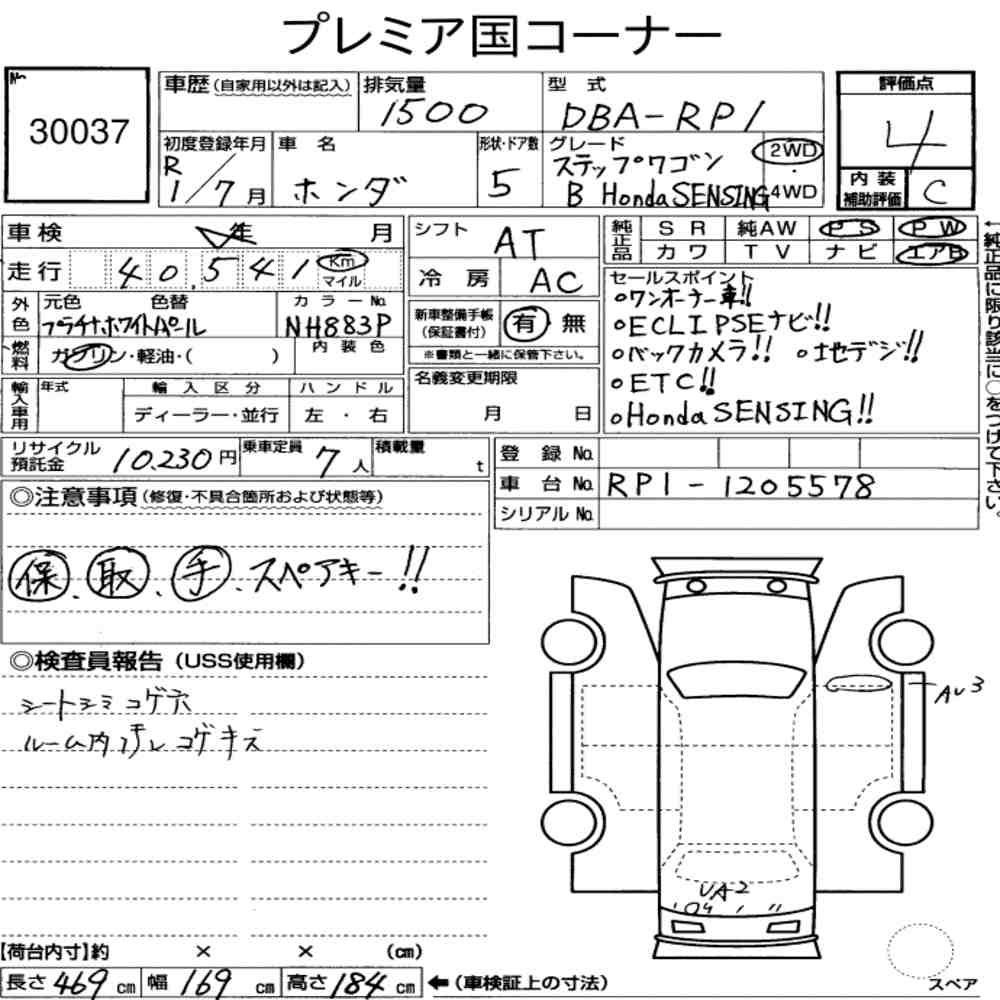 プレミア国コーナー
No.
30037
車歴(自家用以外は記入)
排気量
1500
型 式
DBA-RP1
評価点
4
内 装
補助評価
C
初度登録年月
R
1/7月
車 名
ホンダ
形状・ドア数
5
グレード
ステップワゴン
B Honda SENSING
2WD
4WD
車検 年 月
走行 40,541 Km マイル
シフト AT
冷 房 AC
純正品
SR 純AW PS PW
カワ TV ナビ エアB
←純正品に限り該当に○をつけて下さい。
外色
元色 色替
プラチナホワイトパール
カラーNo.
NH883P
燃料
ガソリン・軽油・( )
内 装 色
新車整備手帳
(保証書付)
有・無
※書類と一緒に保管下さい。
セールスポイント
○ワンオーナー車!!
○ECLIPSEナビ!!
○バックカメラ!! ○地デジ!!
○ETC!!
○Honda SENSING!!
輸入車用
年式
輸 入 区 分
ディーラー・並行
ハ ン ド ル
左 ・ 右
名義変更期限
月 日
リサイクル
預託金
10,230円
乗車定員
7人
積載量
t
登 録 No.
車 台 No. RP1-1205578
シリアル No.
◎注意事項(修復・不具合箇所および状態等)
保、取、手、スペアキー!!
◎検査員報告(USS使用欄)
シートシミ コゲ穴
ルーム内汚レ コゲ キズ
AU3
UA2
04
【荷台内寸】約 × × (cm)
長さ 469 cm 幅 169 cm 高さ 184 cm ←(車検証上の寸法)
スペア